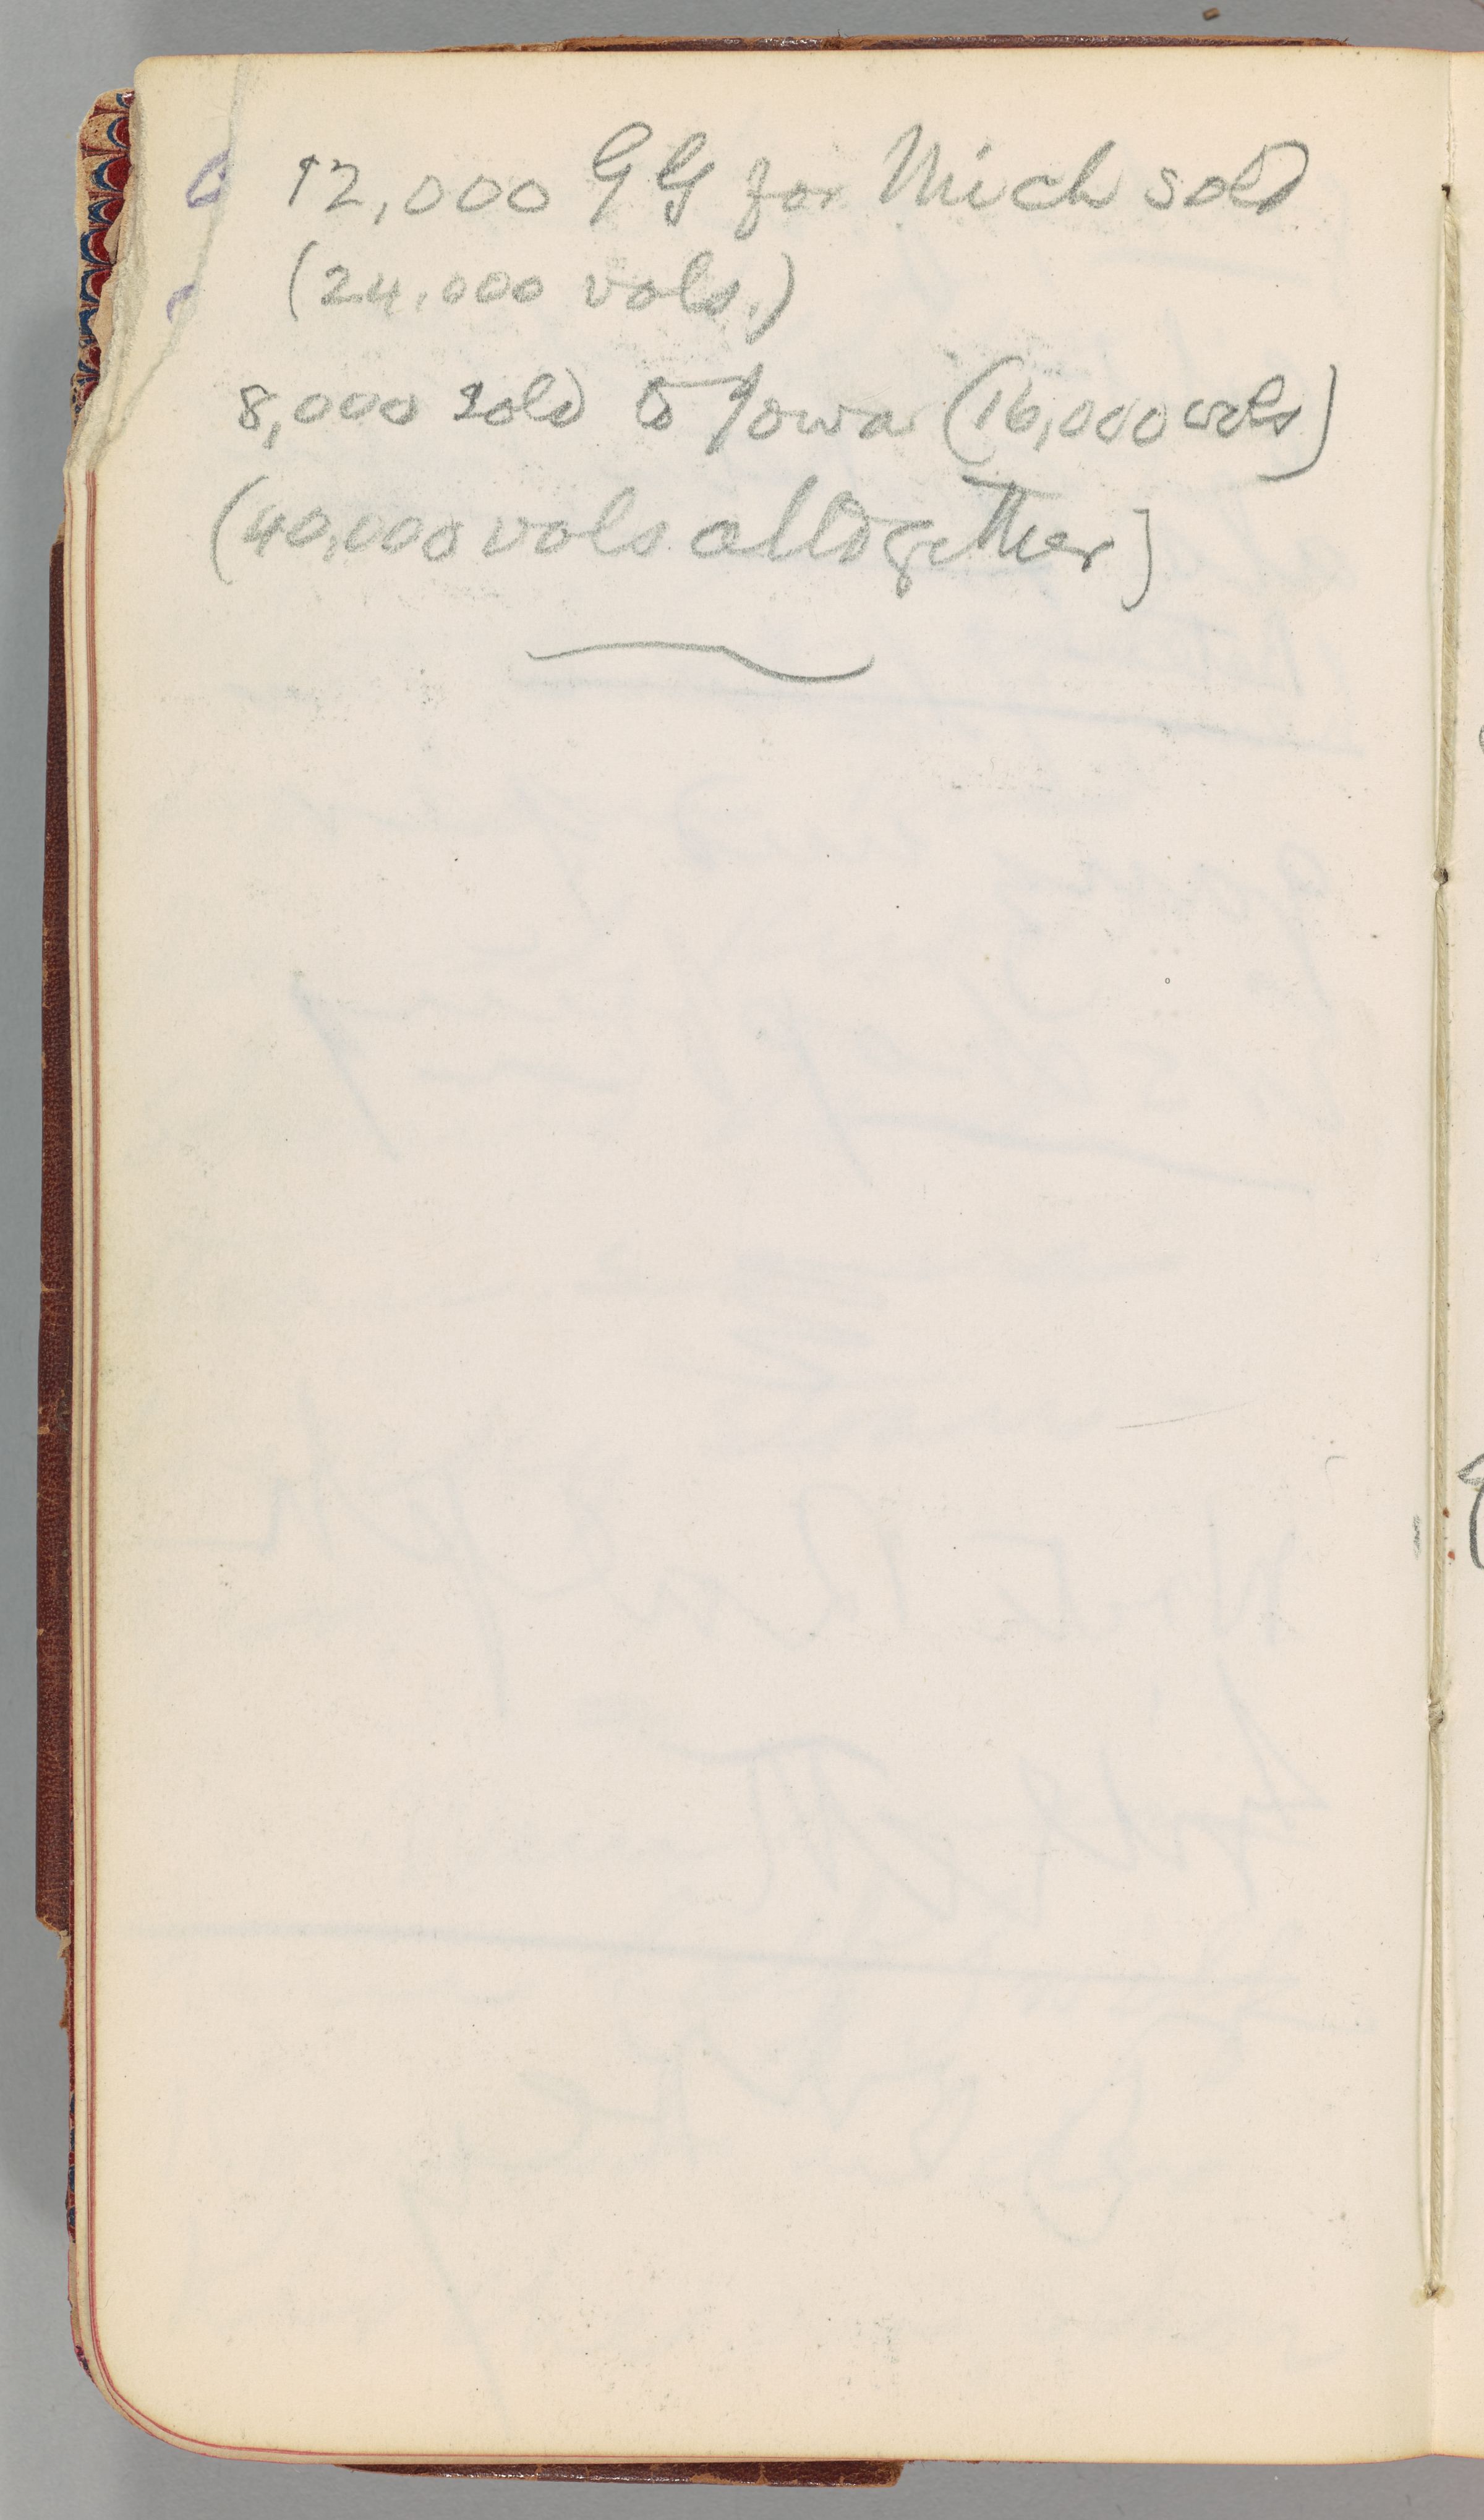 12,000 GG for Mich sold
(24,000 vols.)
8,000 sold to Iowa (16,000 vols)
(40,000 vols. alltogether)